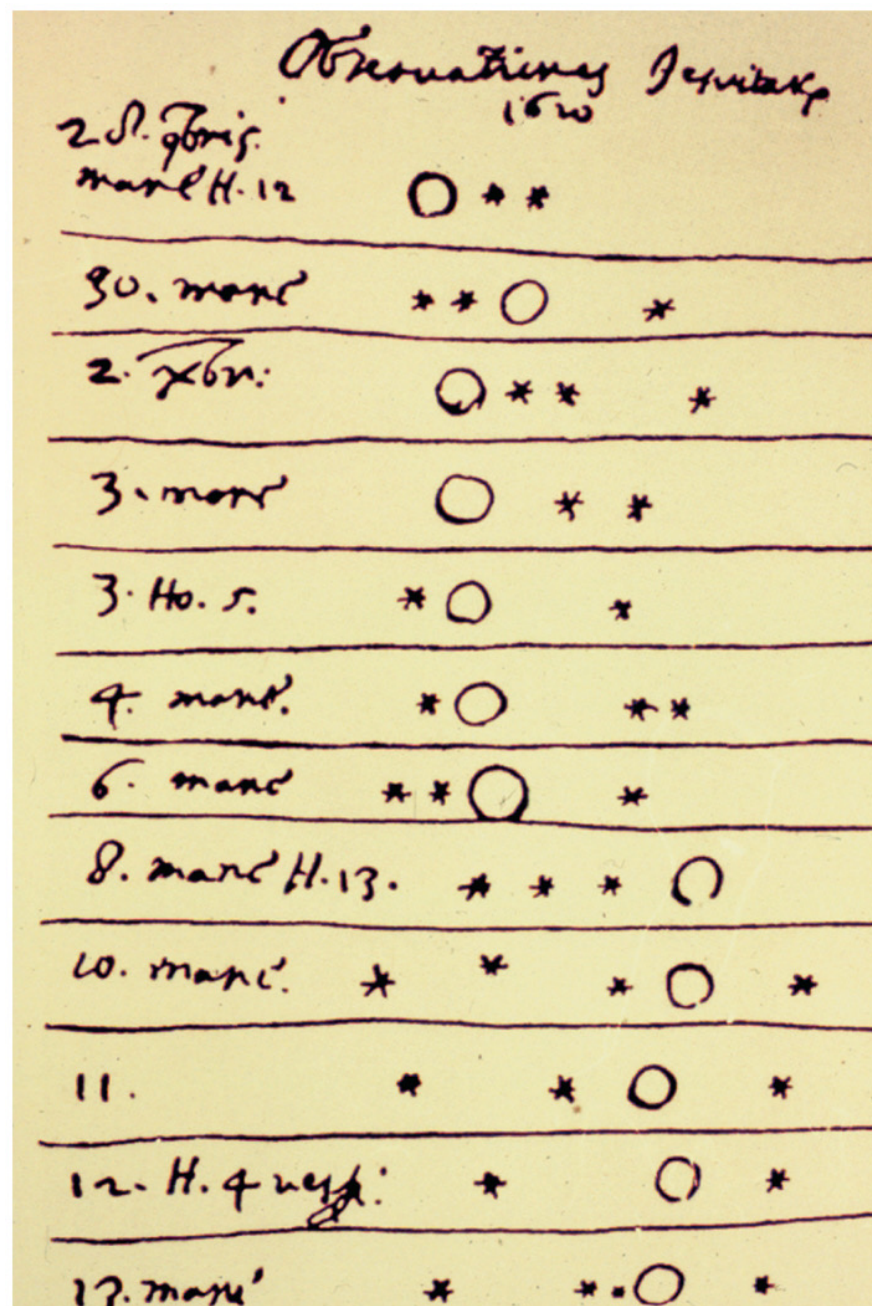 Observationes
9bris.
mane H. 12
30. mane
2. Xbr:
3. mane
3. Ho. 5.
4. mane.
6. mane
8. mane H. 13.
10. mane.
11.
12. H. 4 vesp:
13. mane